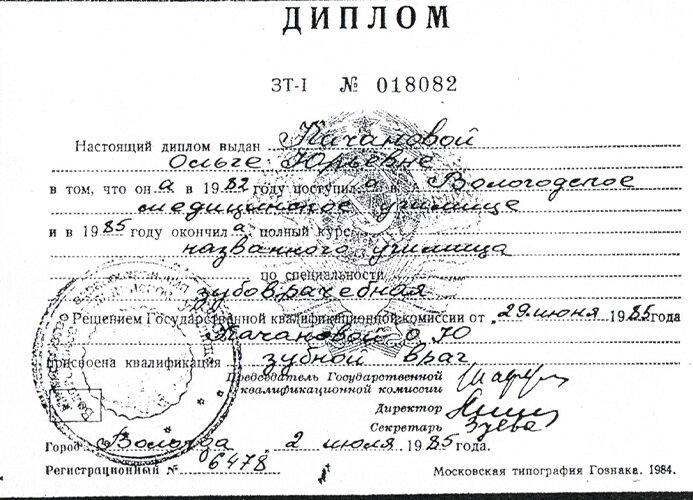 ДИПЛОМ
ЗТ-I № 018082
Настоящий диплом выдан Качановой
Ольге Юрьевне
в том, что он а в 1982 году поступил а в Вологодское
медицинское училище
и в 1985 году окончил а полный курс
названного училища
по специальности
зубоврачебная
Решением Государственной квалификационной комиссии от „29" июня 1985 года
Качановой О Ю
присвоена квалификация зубной врач
Председатель Государственной
квалификационной комиссии
Директор
Секретарь Зуева
Город Вологда „2" июля 1985 года.
Регистрационный № 6478
Московская типография Гознака. 1984.